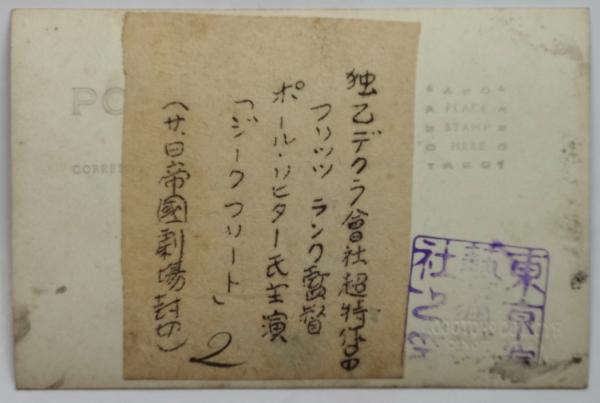 独乙デクラ會社超特作品
フリッツ ランク監督
ポール・リヒター氏主演
「ジークフリート」
(廿、日帝國劇場封切)
2
PO
CORRES
PLACE
STAMP
HERE
東京
社